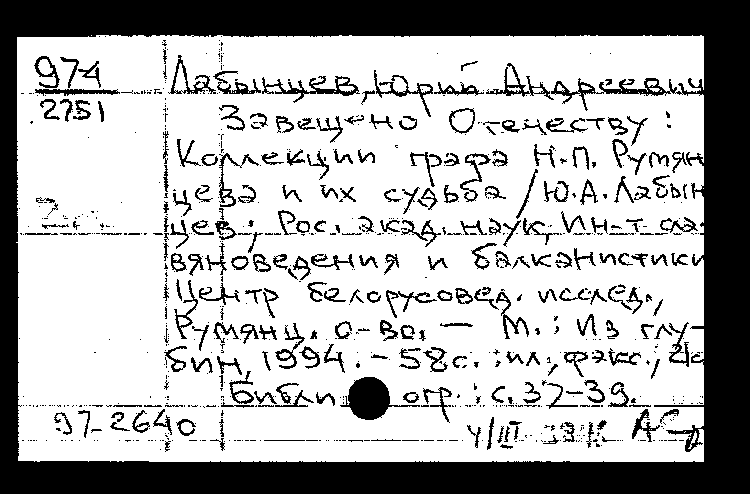 974 Лабынцев, Юрий Андреевич
2751 Завещено Отечеству:
Коллекции графа Н.П. Румян-
цева и их судьба / Ю.А. Лабын-
цев; Рос. акад. наук, Ин-т сла-
вяноведения и балканистики
Центр белорусовед. исслед.,
Румянц. о-во. — М.: Из глу-
бин, 1994. - 58с.: ил., факс.;
Библиогр.: с. 37-39.
97-2640